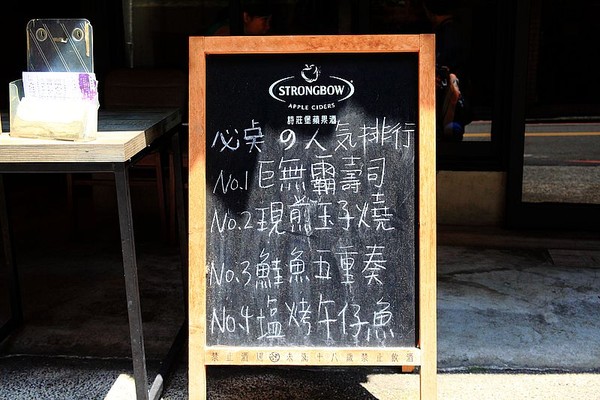 STRONGBOW
APPLE CIDERS
詩莊堡蘋果酒
必点の人気排行
No.1 巨無霸壽司
No.2 現煎玉子燒
No.3 鮭魚五重奏
No.4 塩烤午仔魚
禁止酒駕 未滿十八歲禁止飲酒